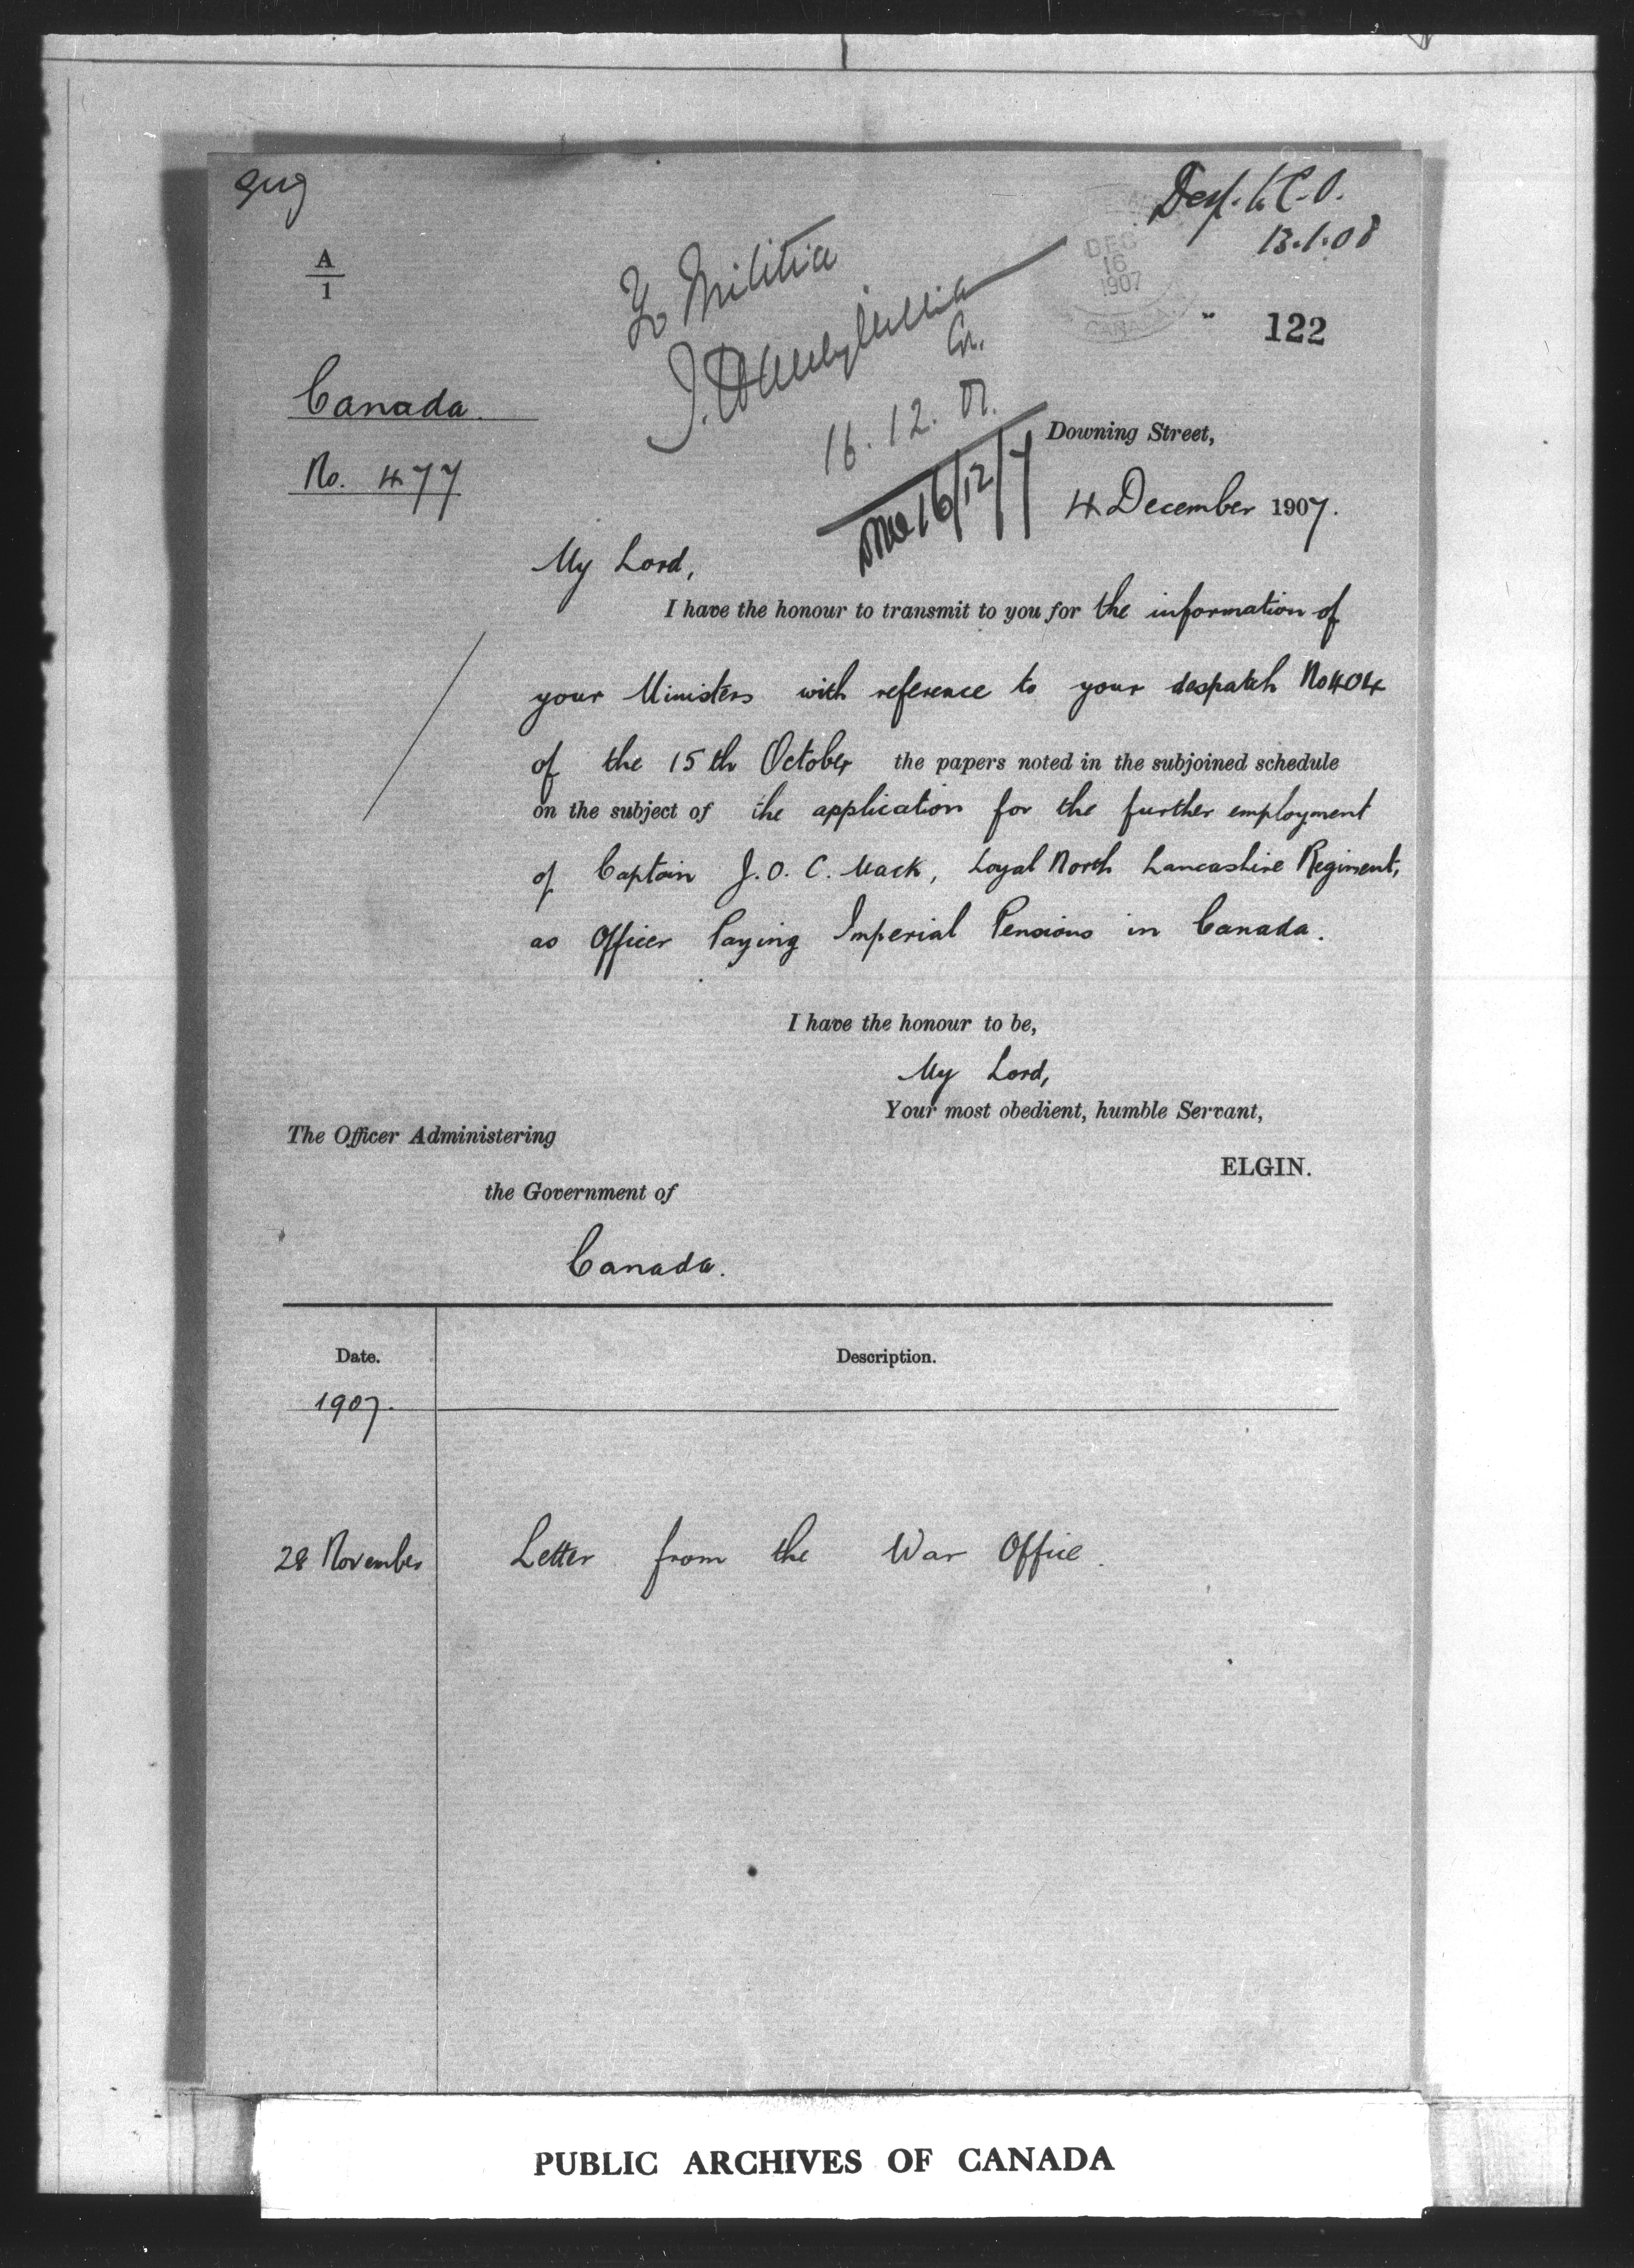 A
1
Desp. to C.O.
13.1.08
DEC
16
1907
CANADA
122
To Militia
16.12.07.
16/12/7
Canada.
No. 477
Downing Street,
4 December 1907.
My Lord,
I have the honour to transmit to you for the information of
your Ministers with reference to your despatch No 404
of the 15th October the papers noted in the subjoined schedule
on the subject of the application for the further employment
of Captain J. O. C. Mack, Loyal North Lancashire Regiment,
as Officer Paying Imperial Pensions in Canada.
I have the honour to be,
My Lord,
Your most obedient, humble Servant,
ELGIN.
The Officer Administering
the Government of
Canada.
Date.
Description.
1907.
28 November
Letter from the War Office.
PUBLIC ARCHIVES OF CANADA